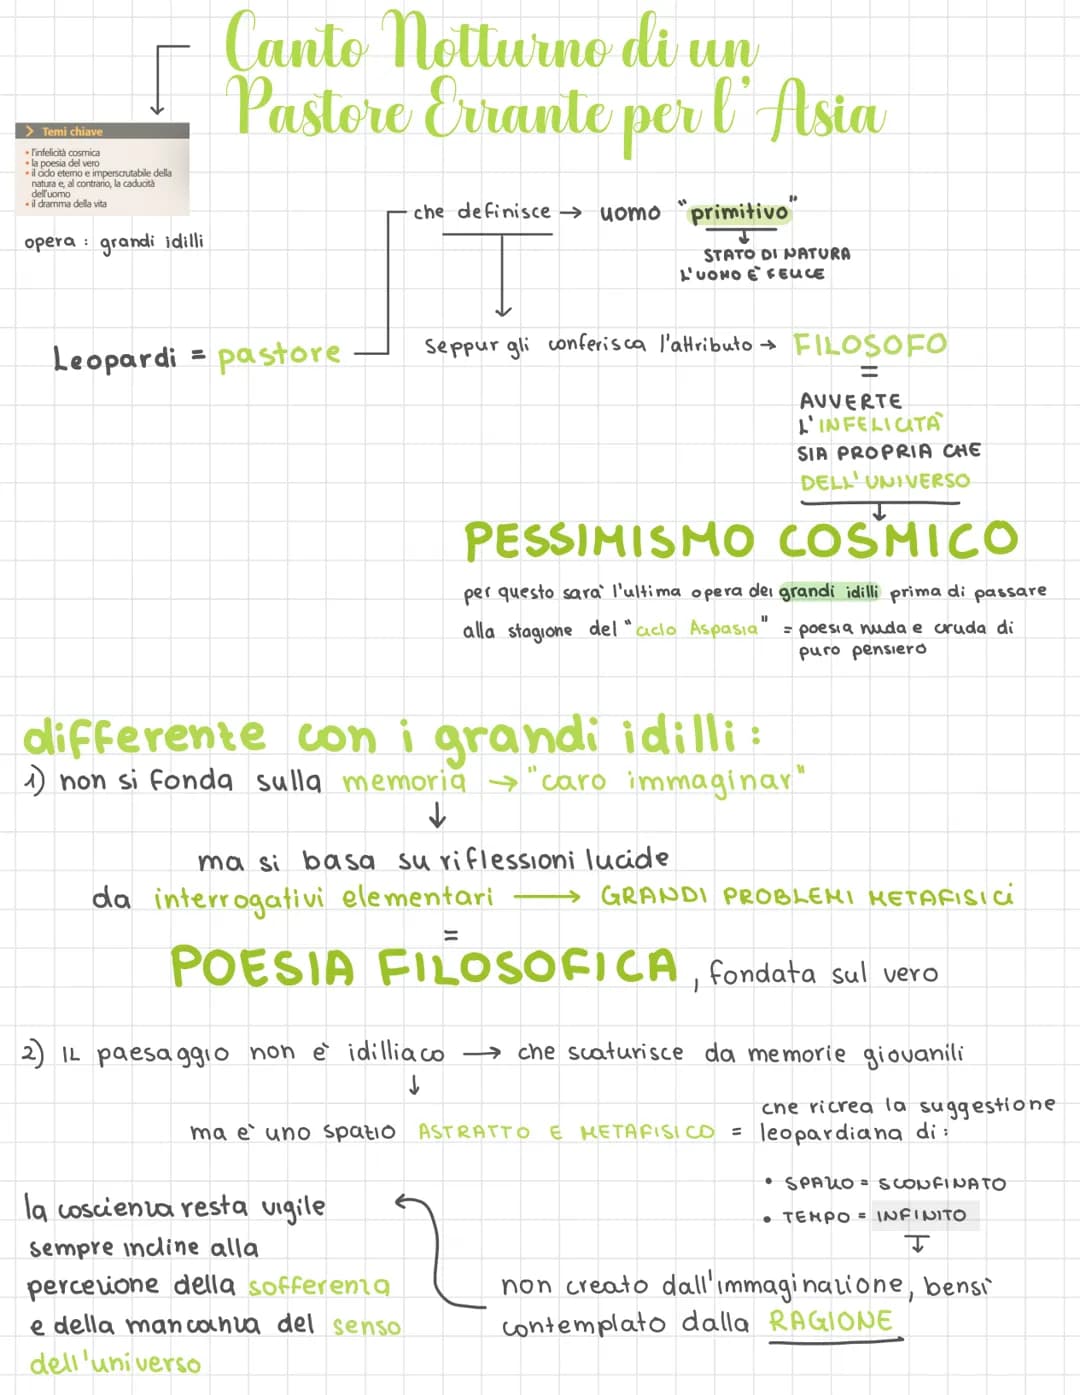 Canto Notturno di un
Pastore Errante per l'Asia
> Temi chiave
• l'infelicità cosmica
• la poesia del vero
• il ciclo eterno e imperscrutabile della
natura e, al contrario, la caducità
dell'uomo
• il dramma della vita
opera : grandi idilli
che definisce → uomo "primitivo"
STATO DI NATURA
L'UOMO E' FELICE
Leopardi = pastore
Seppur gli conferisca l'attributo → FILOSOFO
=
AVVERTE
L'INFELICITÀ
SIA PROPRIA CHE
DELL'UNIVERSO
PESSIMISMO COSMICO
per questo sara' l'ultima opera dei grandi idilli prima di passare
alla stagione del "ciclo Aspasia" = poesia nuda e cruda di
puro pensiero
differente con i grandi idilli :
1) non si fonda sulla memoria → "caro immaginar"
↓
ma si basa su riflessioni lucide
da interrogativi elementari → GRANDI PROBLEMI METAFISICi
=
POESIA FILOSOFICA , fondata sul vero
2) IL paesaggio non e' idilliaco → che scaturisce da memorie giovanili
↓
ma e' uno spazio ASTRATTO E METAFISICO = che ricrea la suggestione
leopardiana di :
• SPAZIO = SCONFINATO
• TEMPO = INFINITO
non creato dall'immaginazione, bensi'
contemplato dalla RAGIONE
la coscienza resta vigile
sempre incline alla
percezione della sofferenza
e della mancanza del senso
dell'universo